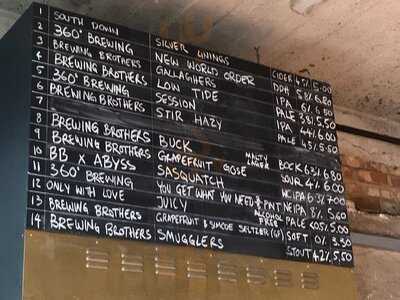 1 SOUTH DOWN SILVER LININGS CIDER 4% 5.00
2 360° BREWING NEW WORLD ORDER DDH 5.8% 6.80
3 BREWING BROTHERS GALLAGHERS IPA 6% 6.00
4 BREWING BROTHERS LOW TIDE PALE 3.8% 5.50
5 360° BREWING SESSION IPA 4% 6.00
6 BREWING BROTHERS STIR HAZY PALE 4.5% 5.50
7
8 BREWING BROTHERS BUCK MALTY LAGER BOCK 6.3% 6.80
9 BREWING BROTHERS GRAPEFRUIT GOSE SOUR 4% 6.00
10 BB X ABYSS SASQUATCH WCIPA 6.3% 7.00
11 360° BREWING YOU GET WHAT YOU NEED PINT NEIPA 8% 5.60
12 ONLY WITH LOVE JUICY ALCOHOL FREE PALE 5.00
13 BREWING BROTHERS GRAPEFRUIT & SELTZER SOFT 0% 3.50
14 BREWING BROTHERS SMUGGLERS STOUT 4.2% 5.50